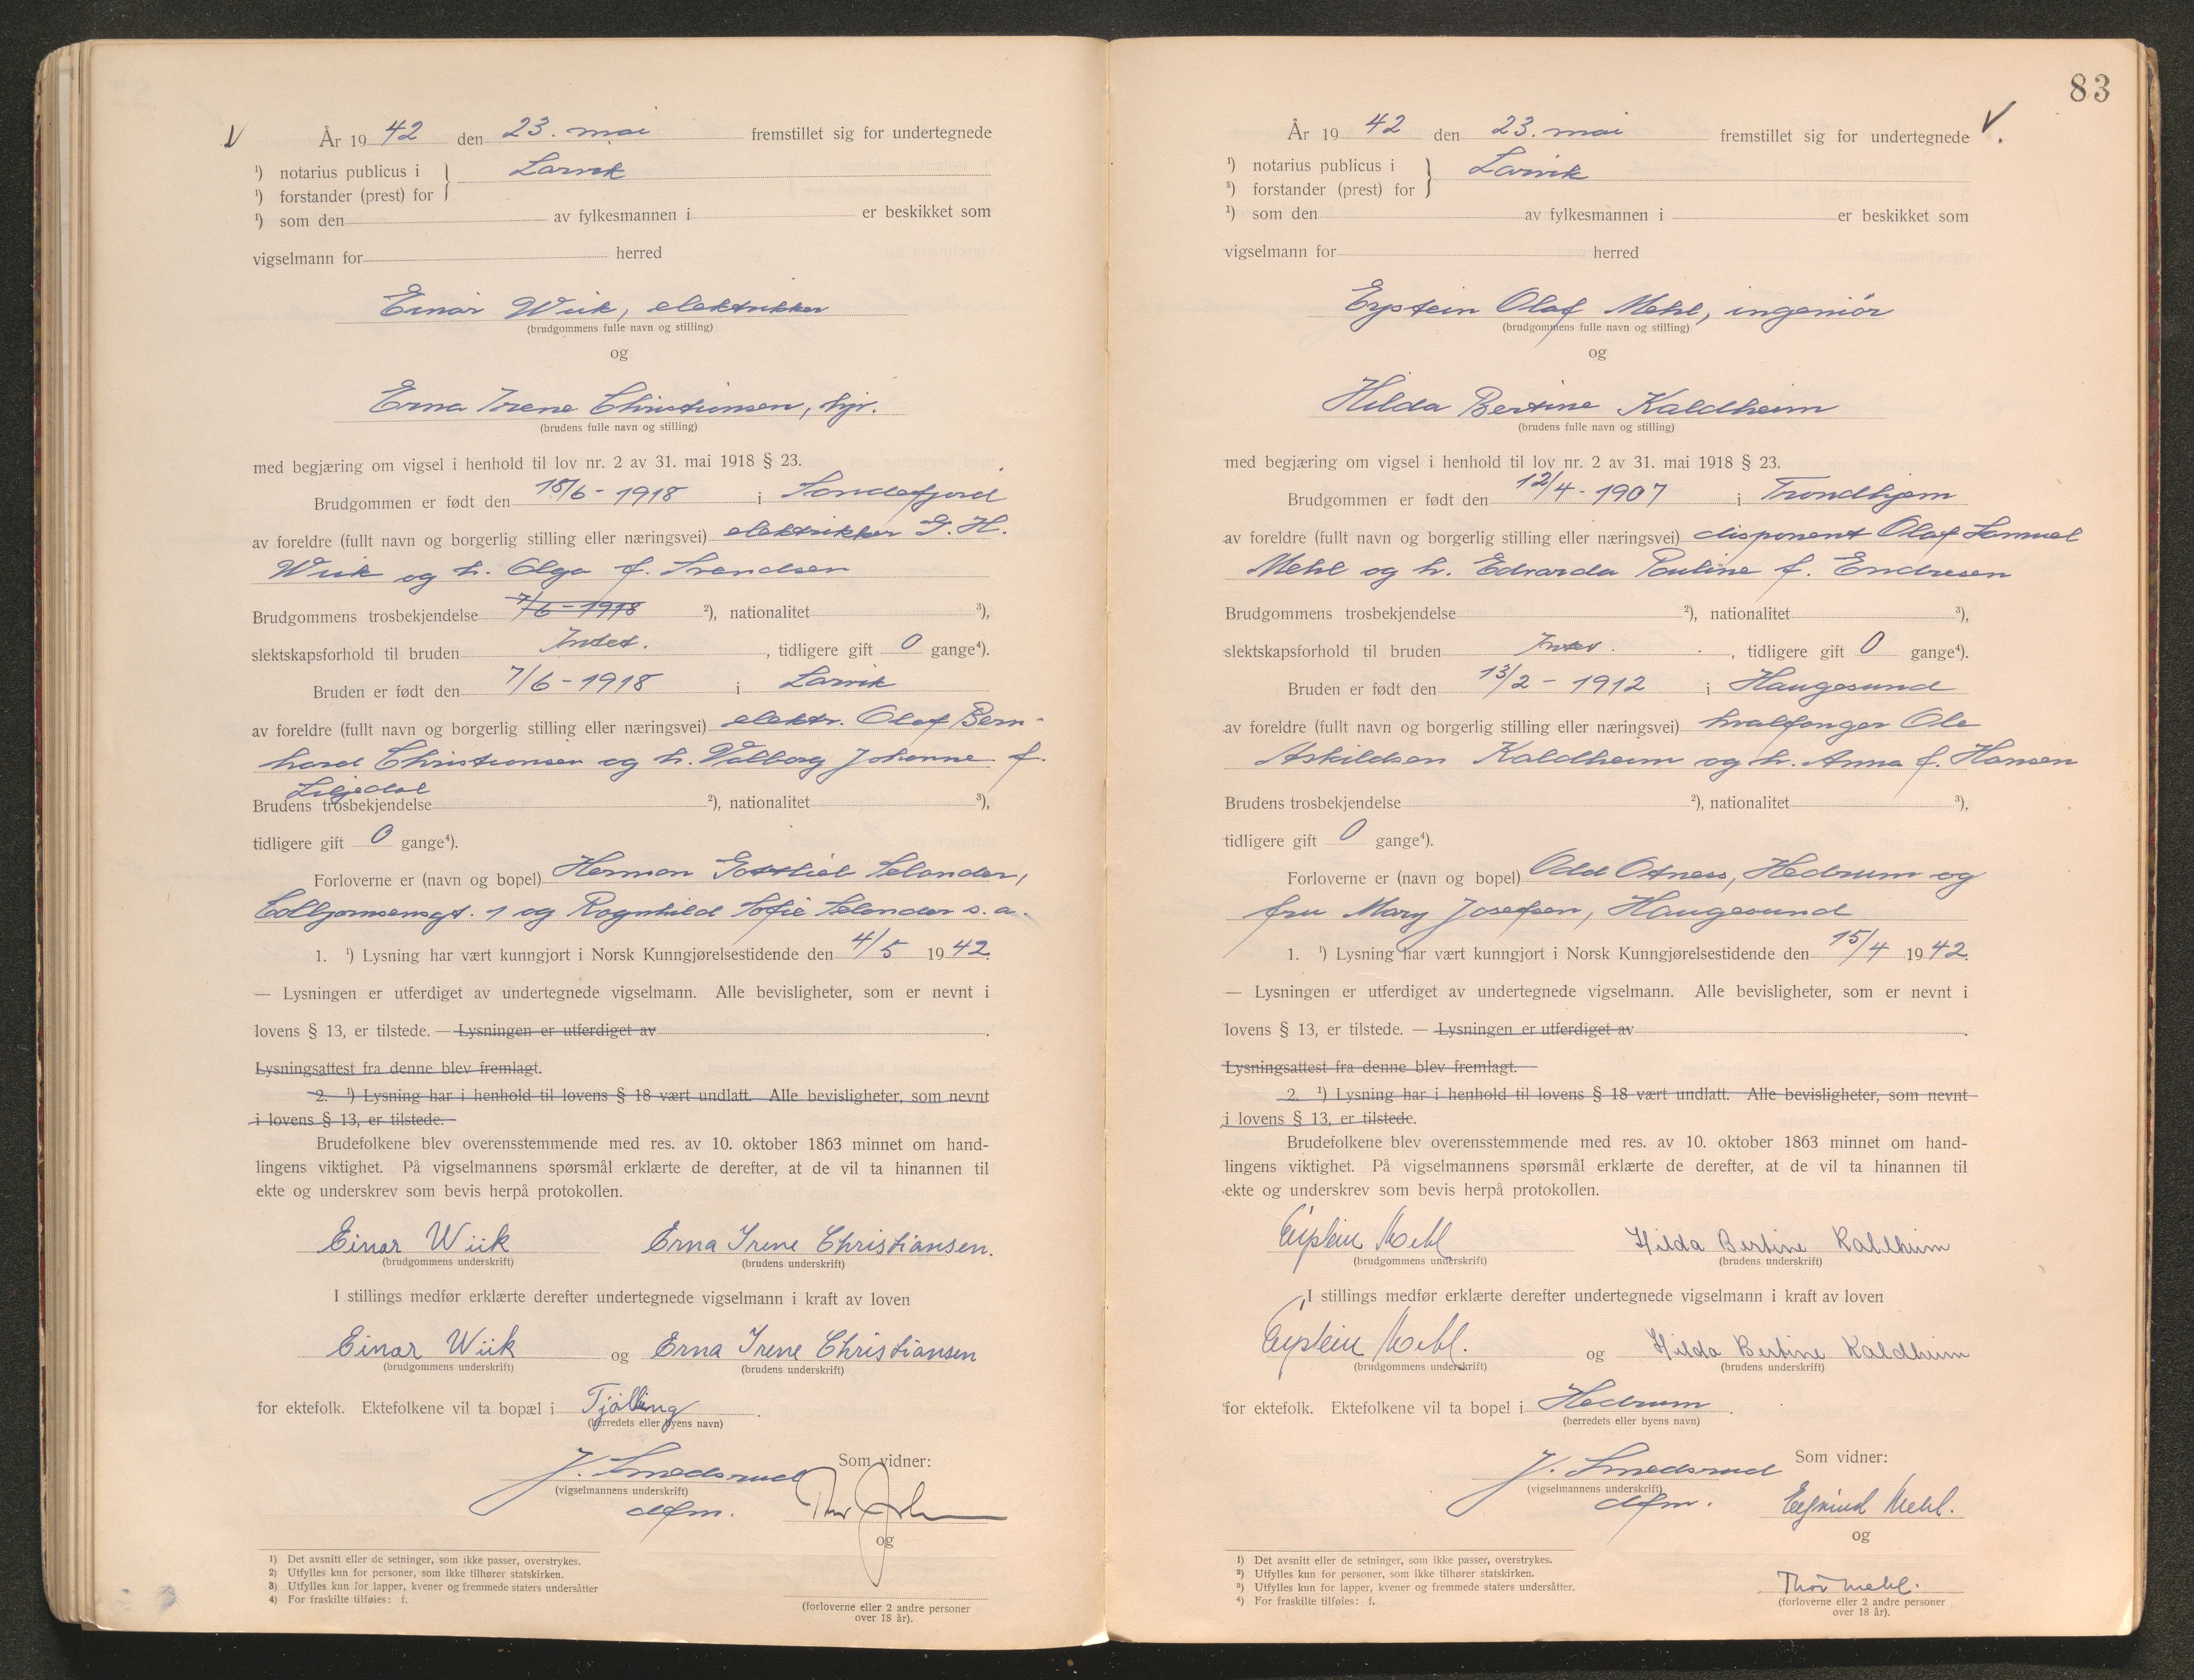 År 1942 den 23. mai fremstillet sig for undertegnede
¹) notarius publicus i Larvik
¹) forstander (prest) for
¹) som den av fylkesmannen i er beskikket som
vigselmann for herred
Einar Wiik, elektrikker
(brudgommens fulle navn og stilling)
og
Erna Irene Christiansen, hjv.
(brudens fulle navn og stilling)
med begjæring om vigsel i henhold til lov nr. 2 av 31. mai 1918 § 23.
Brudgommen er født den 18/6 - 1918 i Sandefjord
av foreldre (fullt navn og borgerlig stilling eller næringsvei) elektrikker G. H.
Wiik og h. Olga f. Svendsen
Brudgommens trosbekjendelse 7/6 - 1918 ²), nationalitet ³),
slektskapsforhold til bruden Intet. , tidligere gift 0 gange⁴).
Bruden er født den 7/6 - 1918 i Larvik
av foreldre (fullt navn og borgerlig stilling eller næringsvei) elektr. Olaf Bern-
hard Christiansen og h. Valborg Johanne f.
Liljedal
Brudens trosbekjendelse ²), nationalitet ³),
tidligere gift 0 gange⁴).
Forloverne er (navn og bopel) Herman Gottlieb Selander,
Colbjørnsensgt. 1 og Ragnhild Sofie Selander s. a.
1. ¹) Lysning har vært kunngjort i Norsk Kunngjørelsestidende den 4/5 1942.
— Lysningen er utferdiget av undertegnede vigselmann. Alle bevisligheter, som er nevnt i
lovens § 13, er tilstede. — Lysningen er utferdiget av .
Lysningsattest fra denne blev fremlagt.
2. ¹) Lysning har i henhold til lovens § 18 vært undlatt. Alle bevisligheter, som nevnt
i lovens § 13, er tilstede.
Brudefolkene blev overensstemmende med res. av 10. oktober 1863 minnet om hand-
lingens viktighet. På vigselmannens spørsmål erklærte de derefter, at de vil ta hinannen til
ekte og underskrev som bevis herpå protokollen.
Einar Wiik Erna Irene Christiansen.
(brudgommens underskrift) (brudens underskrift)
I stillings medfør erklærte derefter undertegnede vigselmann i kraft av loven
Einar Wiik og Erna Irene Christiansen
(brudgommens underskrift) (brudens underskrift)
for ektefolk. Ektefolkene vil ta bopæl i Tjølling .
(herredets eller byens navn)
J. Smedsrud Som vidner:
(vigselmannens underskrift)
dfm. Thor
og
(forloverne eller 2 andre personer
over 18 år).
1) Det avsnitt eller de setninger, som ikke passer, overstrykes.
2) Utfylles kun for personer, som ikke tilhører statskirken.
3) Utfylles kun for lapper, kvener og fremmede staters undersåtter
4) For fraskilte tilføies: f.
83
År 1942 den 23. mai fremstillet sig for undertegnede
¹) notarius publicus i Larvik
¹) forstander (prest) for
¹) som den av fylkesmannen i er beskikket som
vigselmann for herred
Eystein Olaf Mehl, ingeniör
(brudgommens fulle navn og stilling)
og
Hilda Bertine Kaldheim
(brudens fulle navn og stilling)
med begjæring om vigsel i henhold til lov nr. 2 av 31. mai 1918 § 23.
Brudgommen er født den 12/4 - 1907 i Trondhjem
av foreldre (fullt navn og borgerlig stilling eller næringsvei) disponent Olaf Samuel
Mehl og h. Edvarda Pauline f. Endresen
Brudgommens trosbekjendelse ²), nationalitet ³),
slektskapsforhold til bruden Intet . , tidligere gift 0 gange⁴).
Bruden er født den 13/2 - 1912 i Haugesund
av foreldre (fullt navn og borgerlig stilling eller næringsvei) hvalfanger Ole
Askildsen Kaldheim og h. Anna f. Hansen
Brudens trosbekjendelse ²), nationalitet ³),
tidligere gift 0 gange⁴).
Forloverne er (navn og bopel) Odd Otness, Hedrum og
fru Mary Josefsen, Haugesund
1. ¹) Lysning har vært kunngjort i Norsk Kunngjørelsestidende den 15/4 1942.
— Lysningen er utferdiget av undertegnede vigselmann. Alle bevisligheter, som er nevnt i
lovens § 13, er tilstede. — Lysningen er utferdiget av .
Lysningsattest fra denne blev fremlagt.
2. ¹) Lysning har i henhold til lovens § 18 vært undlatt. Alle bevisligheter, som nevnt
i lovens § 13, er tilstede.
Brudefolkene blev overensstemmende med res. av 10. oktober 1863 minnet om hand-
lingens viktighet. På vigselmannens spørsmål erklærte de derefter, at de vil ta hinannen til
ekte og underskrev som bevis herpå protokollen.
Eystein Mehl Hilda Bertine Kaldheim
(brudgommens underskrift) (brudens underskrift)
I stillings medfør erklærte derefter undertegnede vigselmann i kraft av loven
Eystein Mehl. og Hilda Bertine Kaldheim
(brudgommens underskrift) (brudens underskrift)
for ektefolk. Ektefolkene vil ta bopel i Hedrum .
(herredets eller byens navn)
J. Smedsrud Som vidner:
(vigselmannens underskrift)
dfm. Mehl.
og
Thor Mehl.
(forloverne eller 2 andre personer
over 18 år).
1) Det avsnitt eller de setninger, som ikke passer, overstrykes.
2) Utfylles kun for personer, som ikke tilhører statskirken.
3) Utfylles kun for lapper, kvener og fremmede staters undersåtter.
4) For fraskilte tilføies: f.